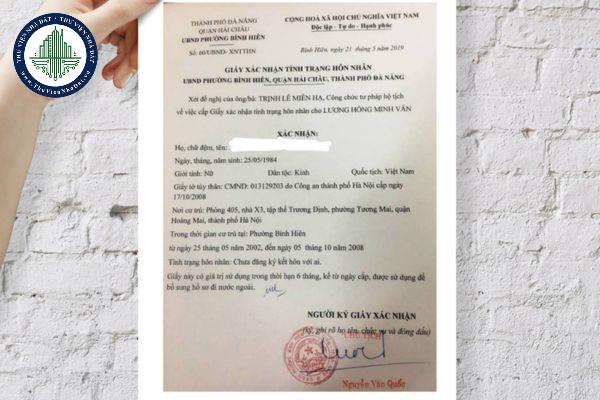 THƯ VIỆN NHÀ ĐẤT - THƯ VIỆN NHÀ ĐẤT
www.ThuVienNhaDat.vn
THÀNH PHỐ ĐÀ NẴNG
QUẬN HẢI CHÂU
UBND PHƯỜNG BÌNH HIÊN
Số: 60/UBND- XNTTHN
CỘNG HOÀ XÃ HỘI CHỦ NGHĨA VIỆT NAM
Độc lập - Tự do - Hạnh phúc
Bình Hiên, ngày 21 tháng 5 năm 2019
GIẤY XÁC NHẬN TÌNH TRẠNG HÔN NHÂN
UBND PHƯỜNG BÌNH HIÊN, QUẬN HẢI CHÂU, THÀNH PHỐ ĐÀ NẴNG
Xét đề nghị của ông/bà: TRỊNH LÊ MIÊN HẠ, Công chức tư pháp hộ tịch
về việc cấp Giấy xác nhận tình trạng hôn nhân cho LƯƠNG HỒNG MINH VÂN
XÁC NHẬN:
Họ, chữ đệm, tên:
Ngày, tháng, năm sinh: 25/05/1984
Giới tính: Nữ Dân tộc: Kinh Quốc tịch: Việt Nam
Giấy tờ tùy thân: CMND: 013129203 do Công an thành phố Hà Nội cấp ngày
17/10/2008
Nơi cư trú: Phòng 405, nhà X3, tập thể Trương Định, phường Tương Mai, quận
Hoàng Mai, thành phố Hà Nội
Trong thời gian cư trú tại: Phường Bình Hiên
từ ngày 25 tháng 05 năm 2002, đến ngày 05 tháng 10 năm 2008
Tình trạng hôn nhân: Chưa đăng ký kết hôn với ai.
Giấy này có giá trị sử dụng trong thời hạn 6 tháng, kể từ ngày cấp, được sử dụng để
bổ sung hồ sơ đi nước ngoài.
NGƯỜI KÝ GIẤY XÁC NHẬN
(ký, ghi rõ họ tên, chức vụ và đóng dấu)
CHỦ TỊCH
Nguyễn Văn Quốc